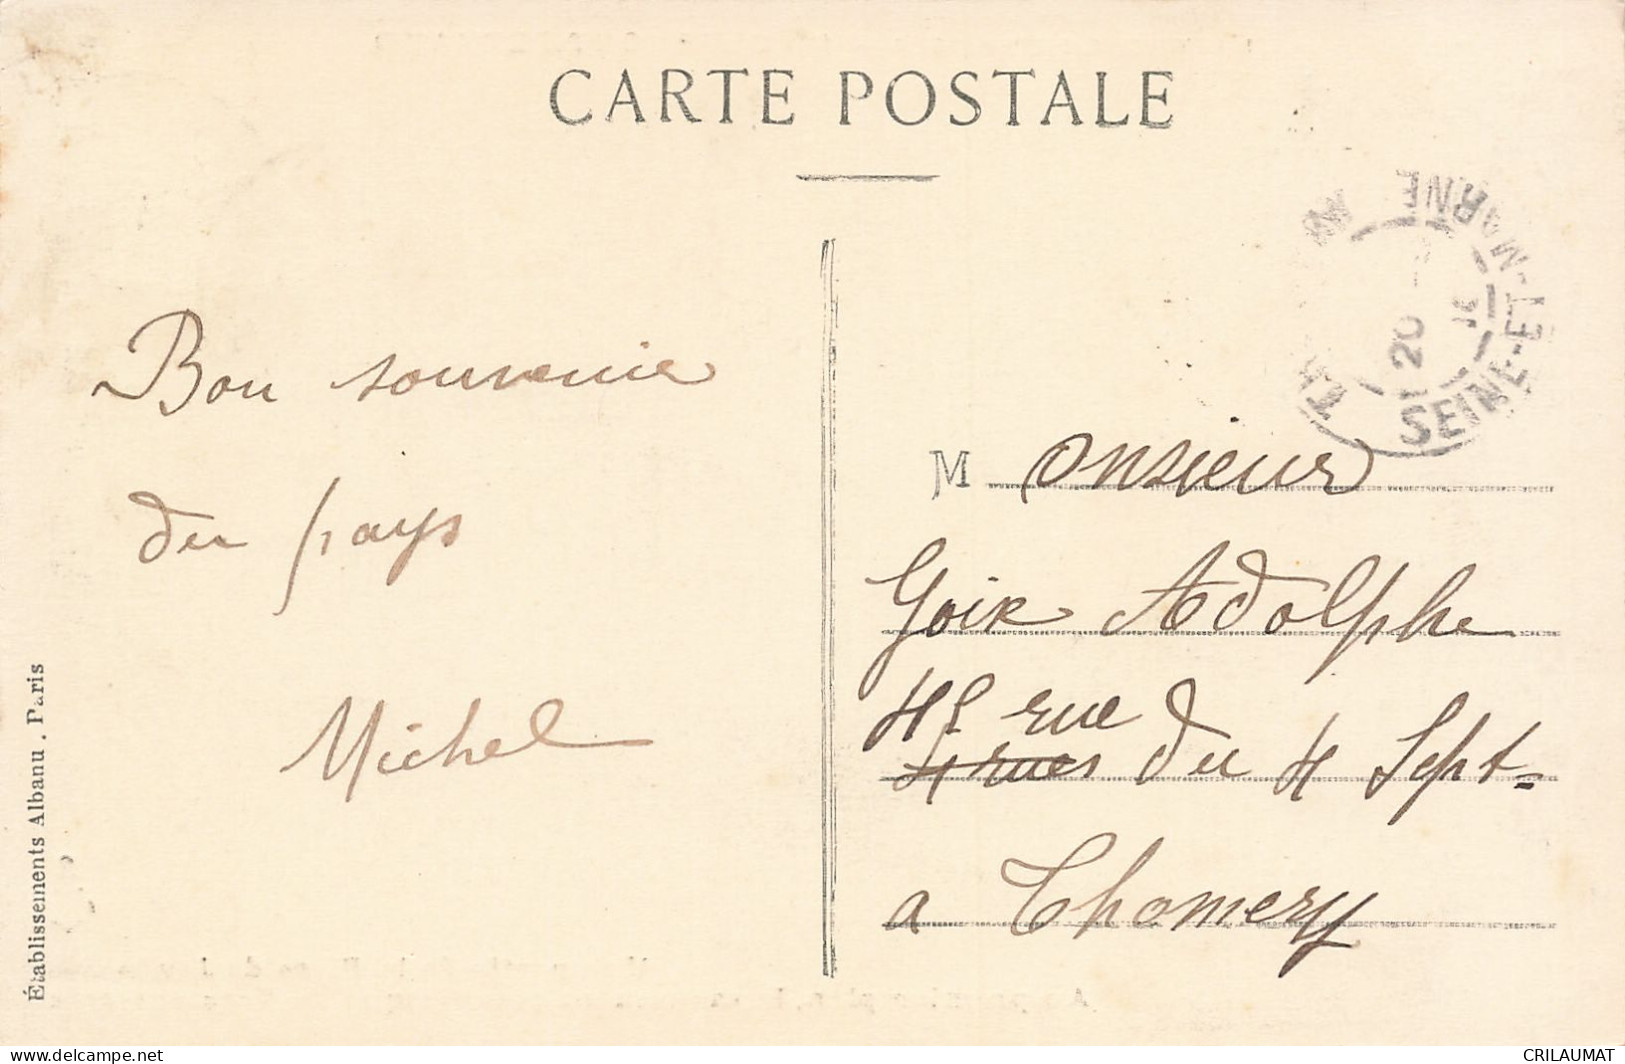 CARTE POSTALE
SEINE-ET-MARNE
20
Bon souvenir
du pays
Michel
Monsieur
Goix Adolphe
rue
4 rues du 4 Sept-
a Thomery
Établissements Albanu . Paris
delcampe.net
CRILAUMAT